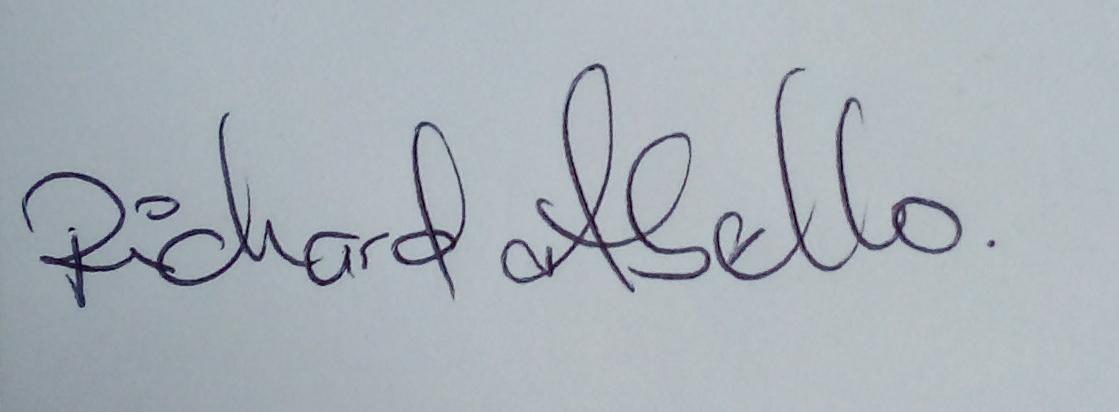 Richard Asello.